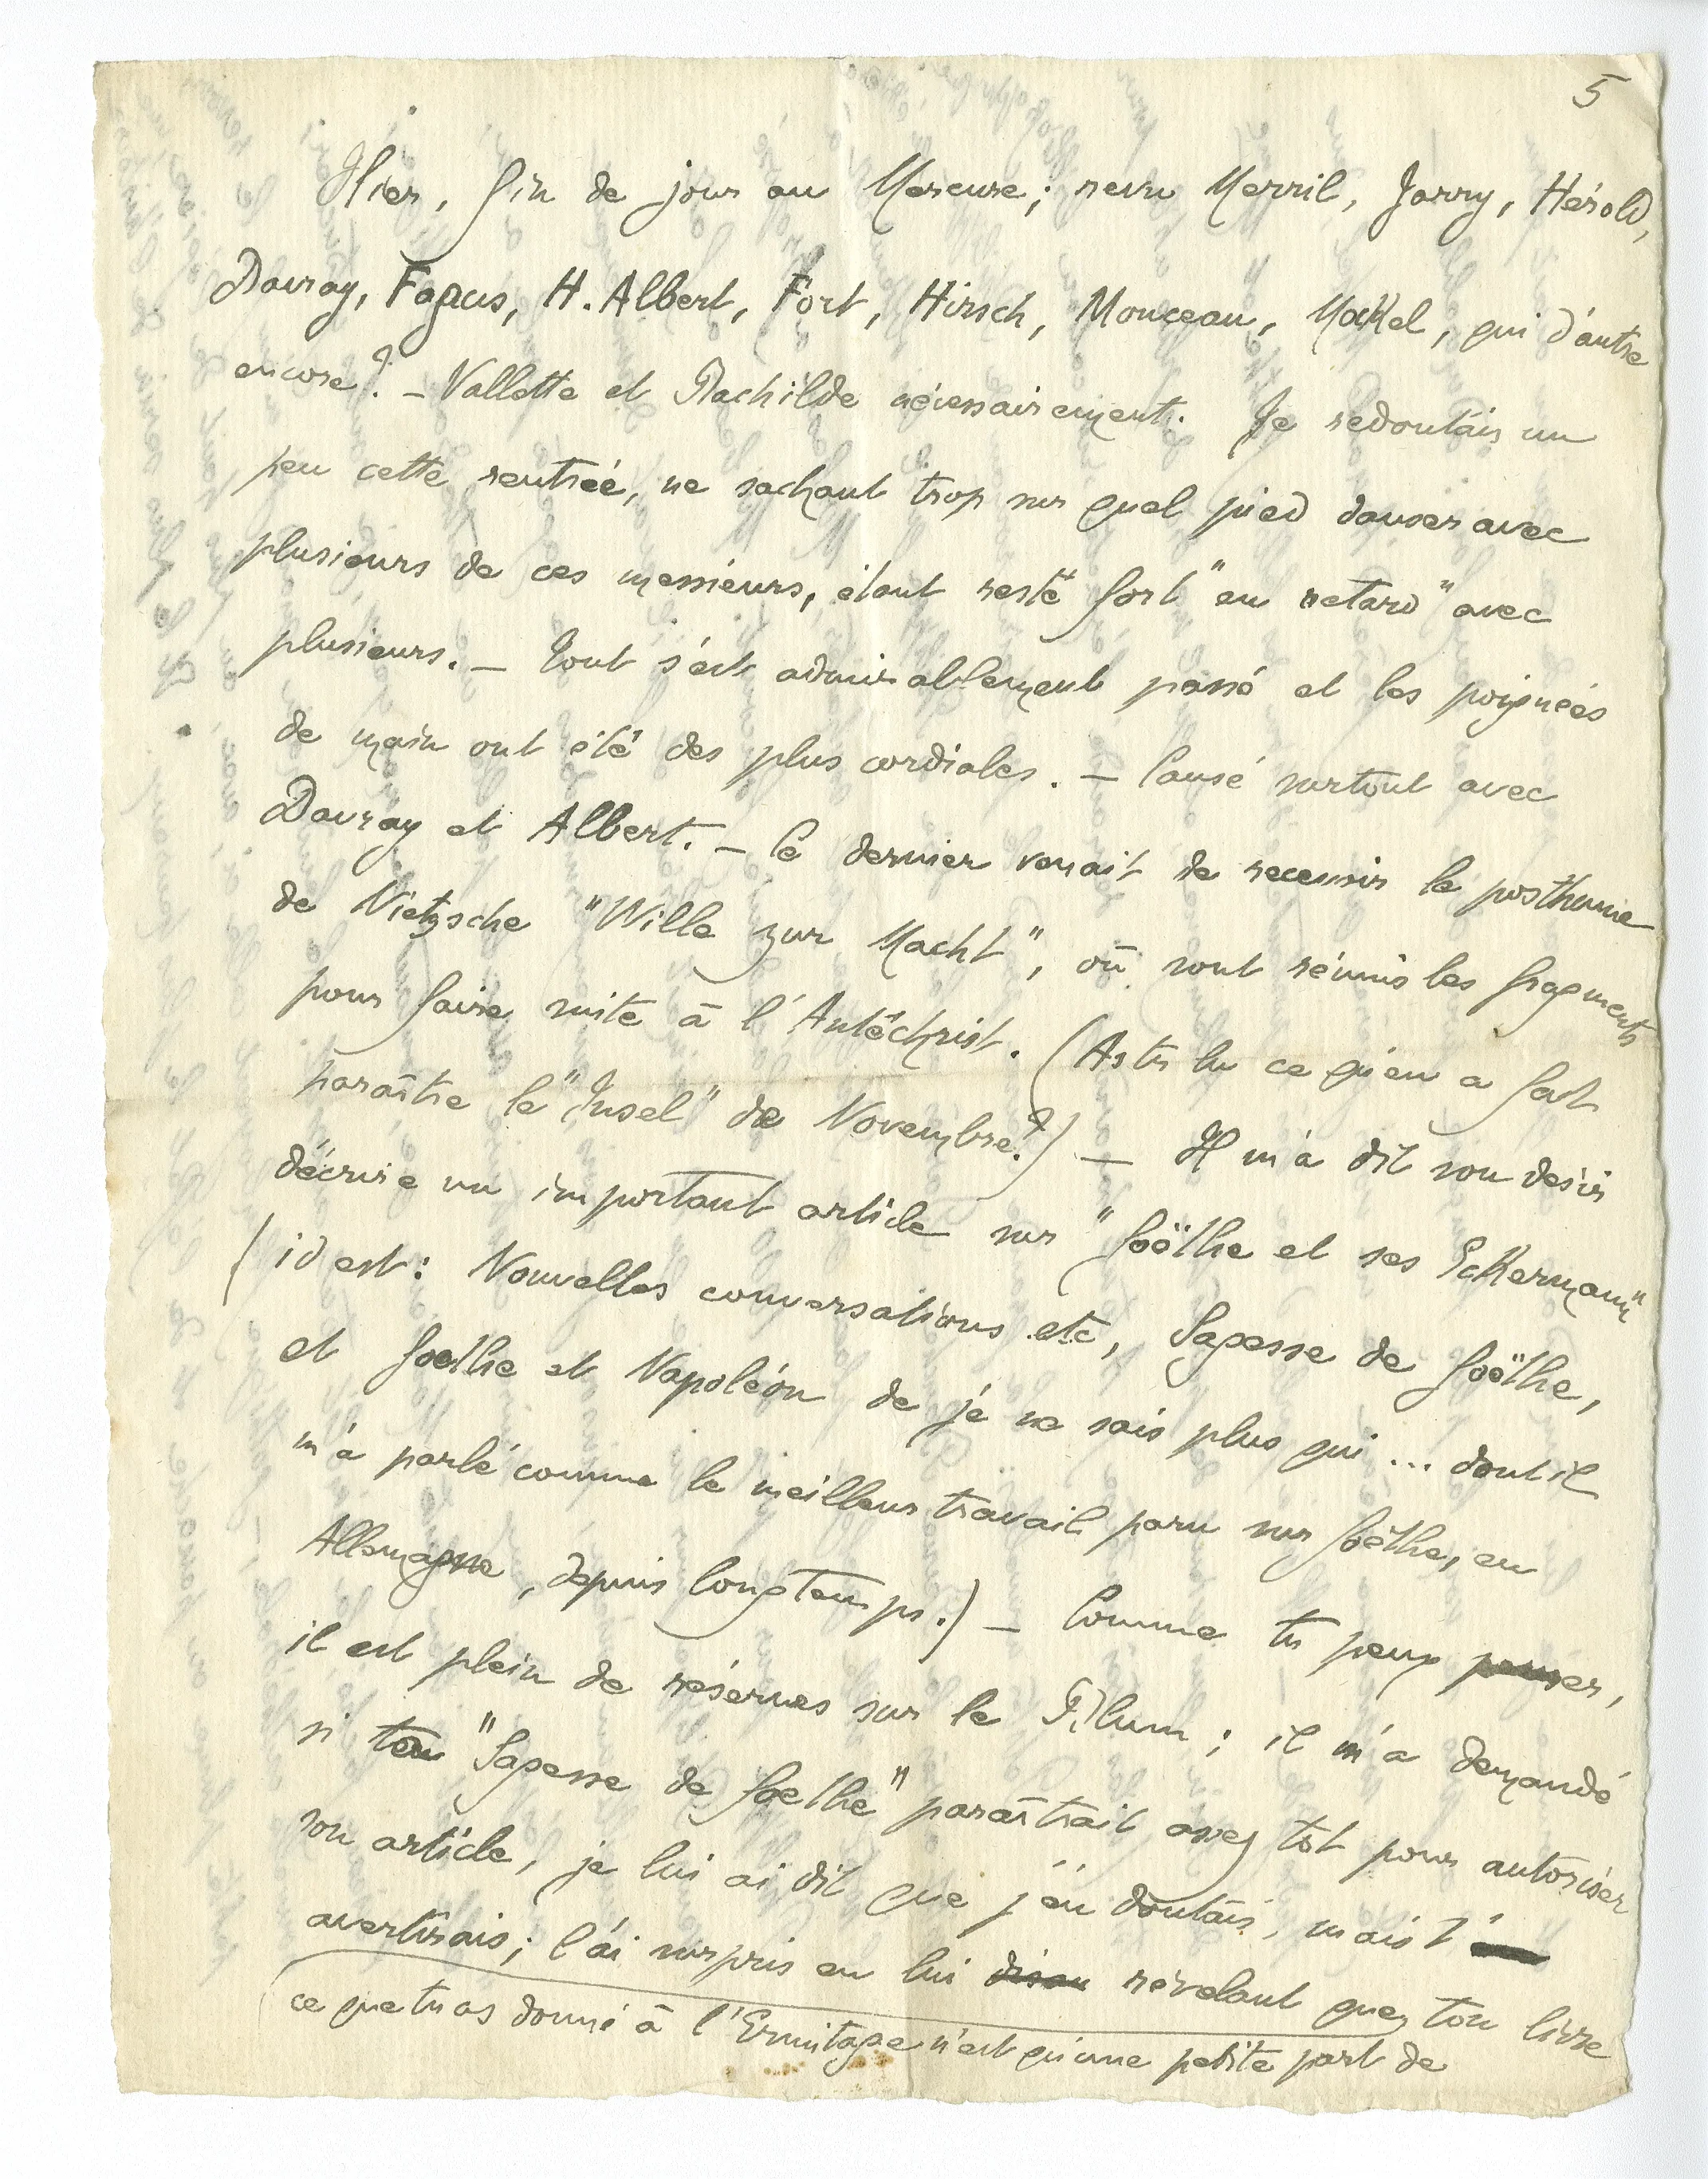 5
Hier, fin de jour au Mercure; revu Merril, Jarry, Hérold,
Davray, Fagus, H. Albert, Fort, Hirsch, Monceau, Mockel, qui d'autre
encore? – Vallette et Rachilde nécessairement. Je redoutais un
peu cette rentrée, ne sachant trop sur quel pied danser avec
plusieurs de ces messieurs, étant resté fort "en retard" avec
plusieurs. – Tout s'est admirablement passé et les poignées
de main ont été des plus cordiales. – Causé surtout avec
Davray et Albert. – Ce dernier venait de recevoir le posthume
de Nietzsche "Wille zur Macht", où sont réunis les fragments
pour faire suite à l'Antéchrist. (As tu lu ce qu'en a fait
paraître le "Insel" de Novembre?) – Il m'a dit son desir
d'écrire un important article sur "Goëthe et ses Eckermann"
(id est: Nouvelles conversations etc, Sagesse de Goëthe,
et Goethe et Napoléon de je ne sais plus qui ... dont il
m'a parlé comme le meilleur travail paru sur Goëthe, en
Allemagne, depuis longtemps.) – Comme tu peux penser,
il est plein de réserves sur le Blum; il m'a demandé
si ton "Sagesse de Goethe" paraîtrait assez tôt pour autoriser
son article, je lui ai dit que j'en doutais, mais t'
avertirais; l'ai surpris en lui révélant que ton livre
ce que tu as donné à l'Ermitage n'est qu'une petite part de